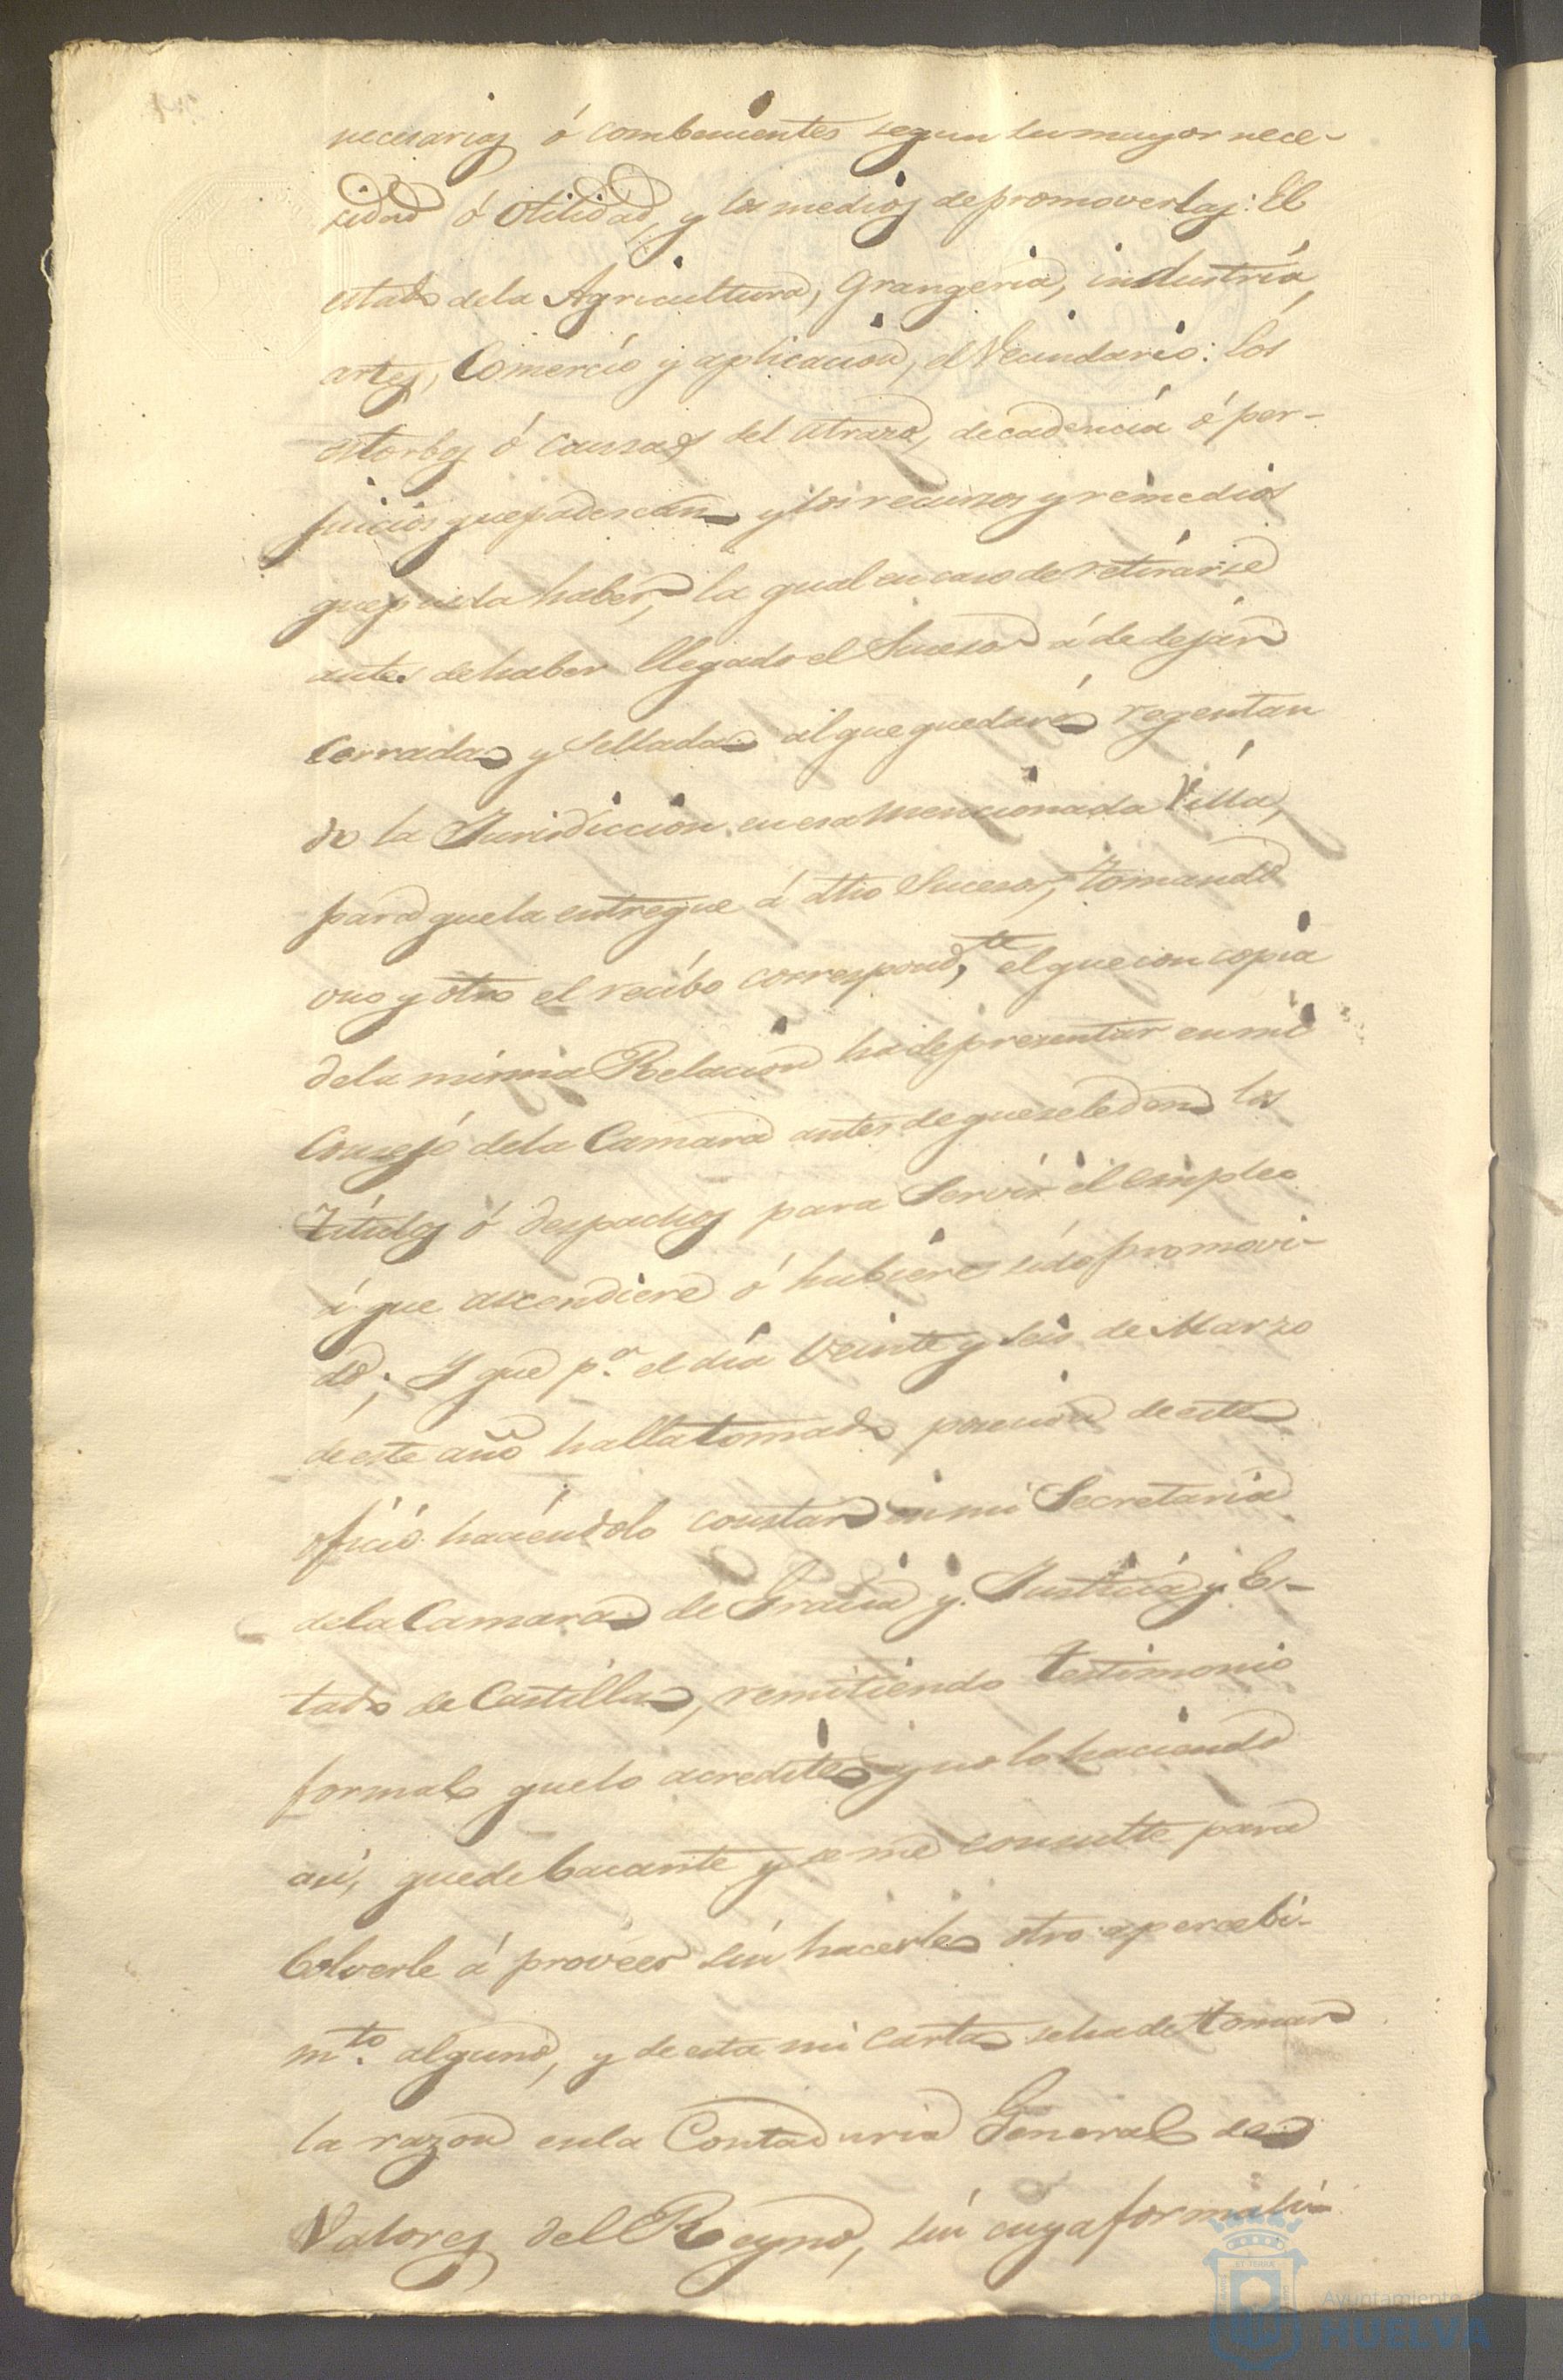 necesarios ó combenientes segun su mayor nece-
cidad ó Utilidad, y los medios de promoverlas: El
estado de la Agricultura, Grangeria, industria,
artes, Comercio y aplicacion, el Vecindario: los
estorbos ó causas del atraso, decadencia ó per-
juicios que padescan y los recursos y remedios
que pueda haber, la qual en caso de retirarse
antes de haber llegado el Sucesor á de dejar
Cerrada y Sellada al que quedare regentan
do la Jurisdiccion en esa mencionada Villa,
para que la entregue á dho Sucesor, tomando
uno y otro el recibo correspond,te el que con copia
de la misma Relacion ha de presentar en mi
Consejo de la Camara antes de que se le den los
Titulos ó despachos para Servir el empleo
á que ascendiere ó hubiere sido promovi-
do; Y que p.a el dia Veinte y seis de Marzo
de este año halla tomado posesion de este
oficio haciendolo constar en mi Secretaria
de la Camara de Gracia y Justicia y Es-
tado de Castilla, remitiendo testimonio
formal que lo acredite y no lo haciendo
asi, quede bacante y se me consulte para
bolverle á proveer sin hacerle otro apercebi-
m.to alguno, y de esta mi Carta se ha de tomar
la razon en la Contaduria General de
Valores del Reyno, sin cuya formali-
Ayuntamiento
HUELVA